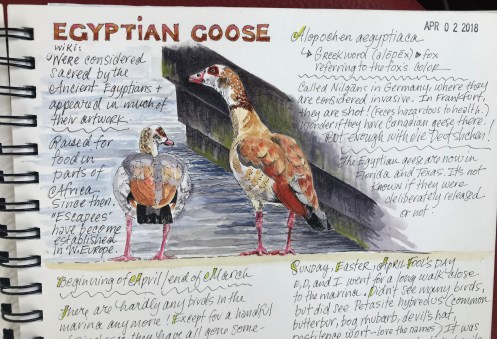 EGYPTIAN GOOSE
wiki:
Were considered
sacred by the
Ancient Egyptians +
appeared in much of
their artwork.
Raised for
food in
parts of
Africa.
Since then,
"Escapees"
have become
established
in W. Europe.
Alopochen aegyptiaca
APR 02 2018
Greek word (alōpēx) fox
referring to the fox's color
Called Nilgans in Germany, where they
are considered invasive. In Frankfurt,
they are shot! (Feces hazardous to health.)
wonder if they have Canadian geese there.
But enough with die Deutschen!
The Egyptian geese are now in
Florida and Texas. It's not
known if they were
deliberately released
or not.
Beginning of April/end of March
There are hardly any birds in the
marina any more! Except for a handful
they have all gone some-
Sunday, Easter, April Fool's Day
E, D, and I went for a long walk close
to the marina. Didn't see many birds,
but did see Petasite hybredus (common
butterbur, bog rhubarb, devil's hat,
pestilence wort - love the names). It was